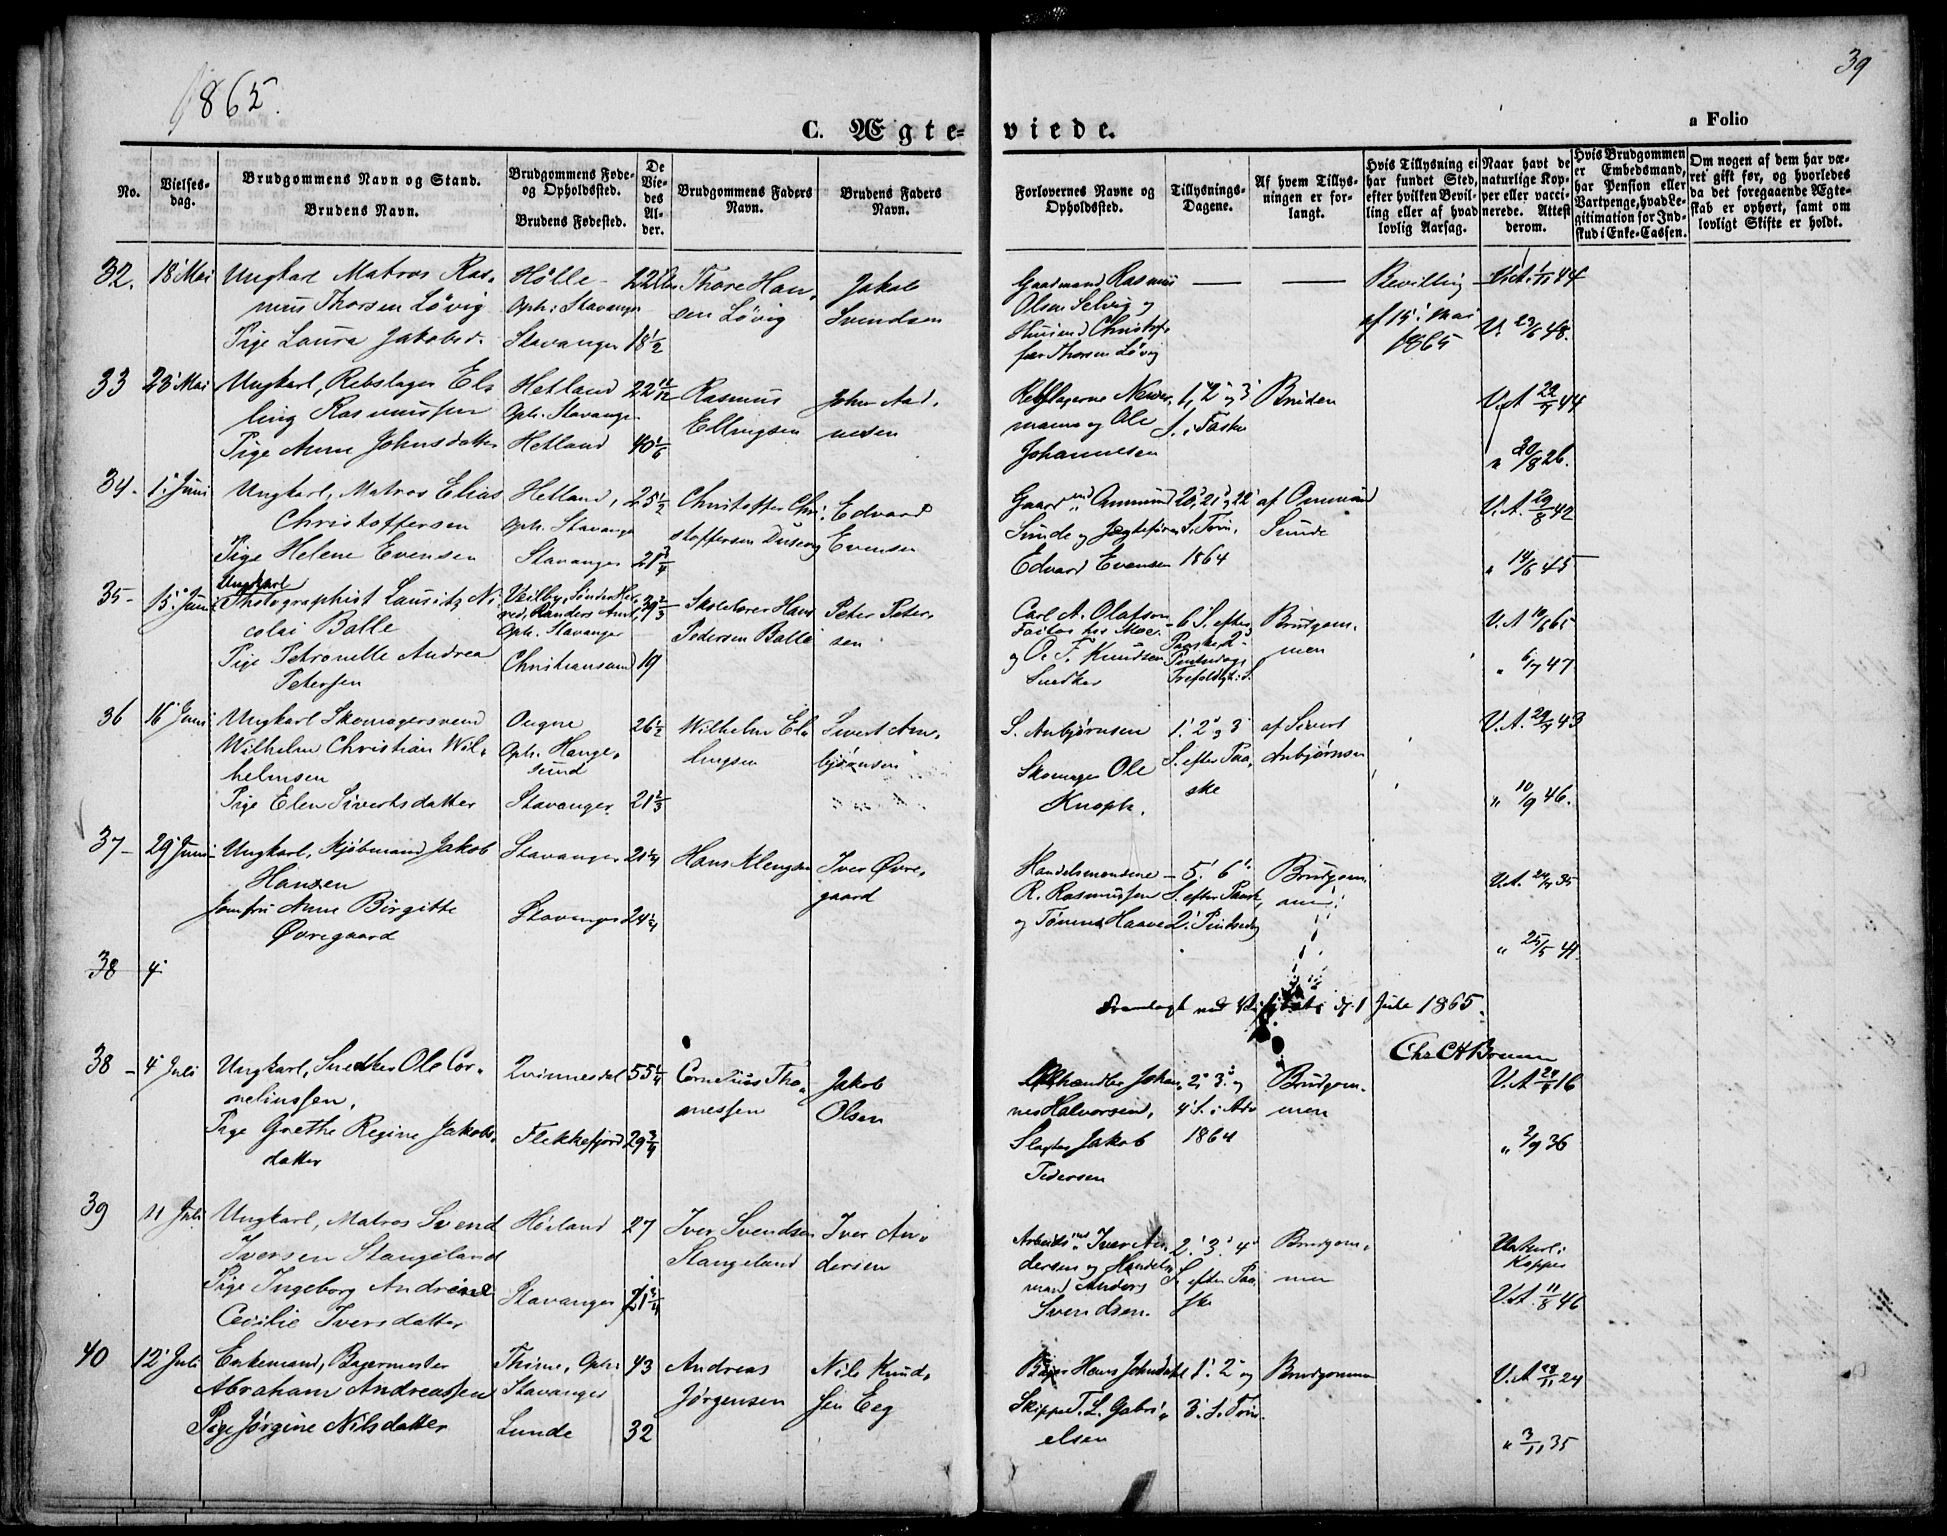 1865.
39
C. Ægte=
viede.
a Folio
No.
Vielses-
dag.
Brudgommens Navn og Stand.
Brudens Navn.
Brudgommens Føde-
og Opholdssted.
Brudens Fødested.
De
Vie-
des
Al-
der.
Brudgommens Faders
Navn.
Brudens Faders
Navn.
Forlovernes Navne og
Opholdssted.
Tillysnings-
Dagene.
Af hvem Tillys-
ningen er for-
langt.
Hvis Tillysning ei
har fundet Sted,
efter hvilken Bevil-
ling eller af hvad
lovlig Aarsag.
Naar havt de
naturlige Kop-
per eller vacci-
nerede. Attest
derom.
Hvis Brudgommen
er Embedsmand,
har Pension eller
Vartpenge, hvad Le-
gitimation for Ind-
skud i Enke-Cassen.
Om nogen af dem har væ-
ret gift før, og hvorledes
da det foregaaende Ægte-
skab er ophørt, samt om
lovligt Skifte er holdt.
32. 18' Mai Ungkarl Matros Ras-
mus Thorsen Løvig
Pige Laura Jakobsd.
Hølle
Oph: Stavanger
Stavanger 18 1/2
Thore Han-
sen Løvig
Jakob
Svendsen
Gaardmand Rasmus
Olsen Selvig og
Huusmd Christof-
fer Thorsen Løvig
— —
Bevilling
af 15' Mai
1865
V.A. 1/11 44
V. 23/6 48.
33 23' Mai Ungkarl, Rebslager El-
ling Rasmussen
Pige Anne Johnsdatter
Hetland 22 11/12
Oph. Stavanger
Hetland 40 1/6
Rasmus
Ellingsen
John Aad-
nesen
Rebslagerne Newer-
manns og Ole
Johannesen
1' 2' og 3'
S. i Faste
Bruden
V.A 22/7 44
" 20/8 26.
34- 1' Juni Ungkarl, Matros Elias
Christoffersen
Pige Helene Evensen
Hetland, 25 1/2
Oph. Stavanger
Stavanger 21 3/4
Christoffer Chri-
stoffersen Dusevig
Edvard
Evensen
Gaardmd Ommund
Sunde og Jægtefører
Edvard Evensen
20', 21' og 22'
S. Trin.
1864
af Ommund
Sunde
V.A. 29/8 42
" 14/6 45
35- 15' Juni Ungkarl
Photographist Lausitz Ni-
colai Balle
Pige Petronelle Andrea
Petersen
Veilby, Sønder Her-
red, Randers Amt, 39 2/3
Oph. Stavanger
Christiansund 19
Skolelærer Hans
Pedersen Balle
Peter Peter-
sen
Carl A. Olafson
Factor hos Moe.
og O. F. Knudsen
Snedker
6' S. efter
Paaske, 2'
Pintsedag,
Trefoldigh: S.
Brudgom-
men
V.A 10/6 65
" 6/7 47.
36 16' Juni Ungkarl Skomagersvend
Wilhelm Christian Wil-
helmsen
Pige Elen Sivertsdatter
Ougne 26 1/2
Oph. Hauge-
sund
Stavanger 21 2/3
Wilhelm El-
lingsen
Sivert An-
bjørnsen
S. Anbjørnsen
Skomager Ole
Knoph.
1' 2' og 3'
S. efter Paa-
ske
af Sivert
Anbjørnsen
V.A. 29/9 43
" 10/9 46.
37- 29' Juni Ungkarl, Kjøbmand Jakob
Hansen
Jomfru Anne Birgitte
Øvregaard
Stavanger 21 1/4
Stavanger 24 1/4
Hans Klengsen
Iver Øvre-
gaard
Handelsmændene
R. Rasmussen
og Tønnes Haaver
5' 6'
S. efter Paask,
2' Pintsedag
Brudgom-
men
V.A. 24/9 35
" 25/5 41.
38 4'
Fremlagt ved Visitats d. 1 Juli 1865.
Chr CH Bruun
38 - 4' Juli Ungkarl, Snedker Ole Cor-
neliussen,
Pige Grethe Regine Jakobs-
datter
Qvinnesdal 55 1/4
Flekkefjord 29 3/4
Cornelius Tho-
mesen
Jakob
Olsen
Johan-
nes Halvorsen,
Slagter Jakob
Pedersen
2' 3' og
4' S. i Adv
1864
Brudgom-
men
V.A 16
" 2/9 36
39 11' Juli Ungkarl, Matros Svend
Iversen Stangeland
Pige Ingeborg Andrine
Cecilie Iversdatter
Høiland 27
Stavanger
Iver Svendsen
Stangeland
Iver An-
dersen
Arbeidsmd Iver An-
dersen og Handels-
mand Anders
Svendsen.
2' 3' 4'
S. efter Paa-
ske
Brudgom-
men
Naturl:
Kopper
V.A. 11/8 46
40 12' Juli Enkemand, Bagermester
Abraham Andreassen
Pige Jørgine Nilsdatter
Thime, Oph: 43
Stavanger
Lunde 32
Andreas
Jørgensen
Nils Knud-
sen Eeg
Bager Hans Johndahl
Skipper T. L. Gabri-
elsen
1' 2' og
3' S. Trin.
Brudgommen
V.A 28/11 24
" 3/11 35